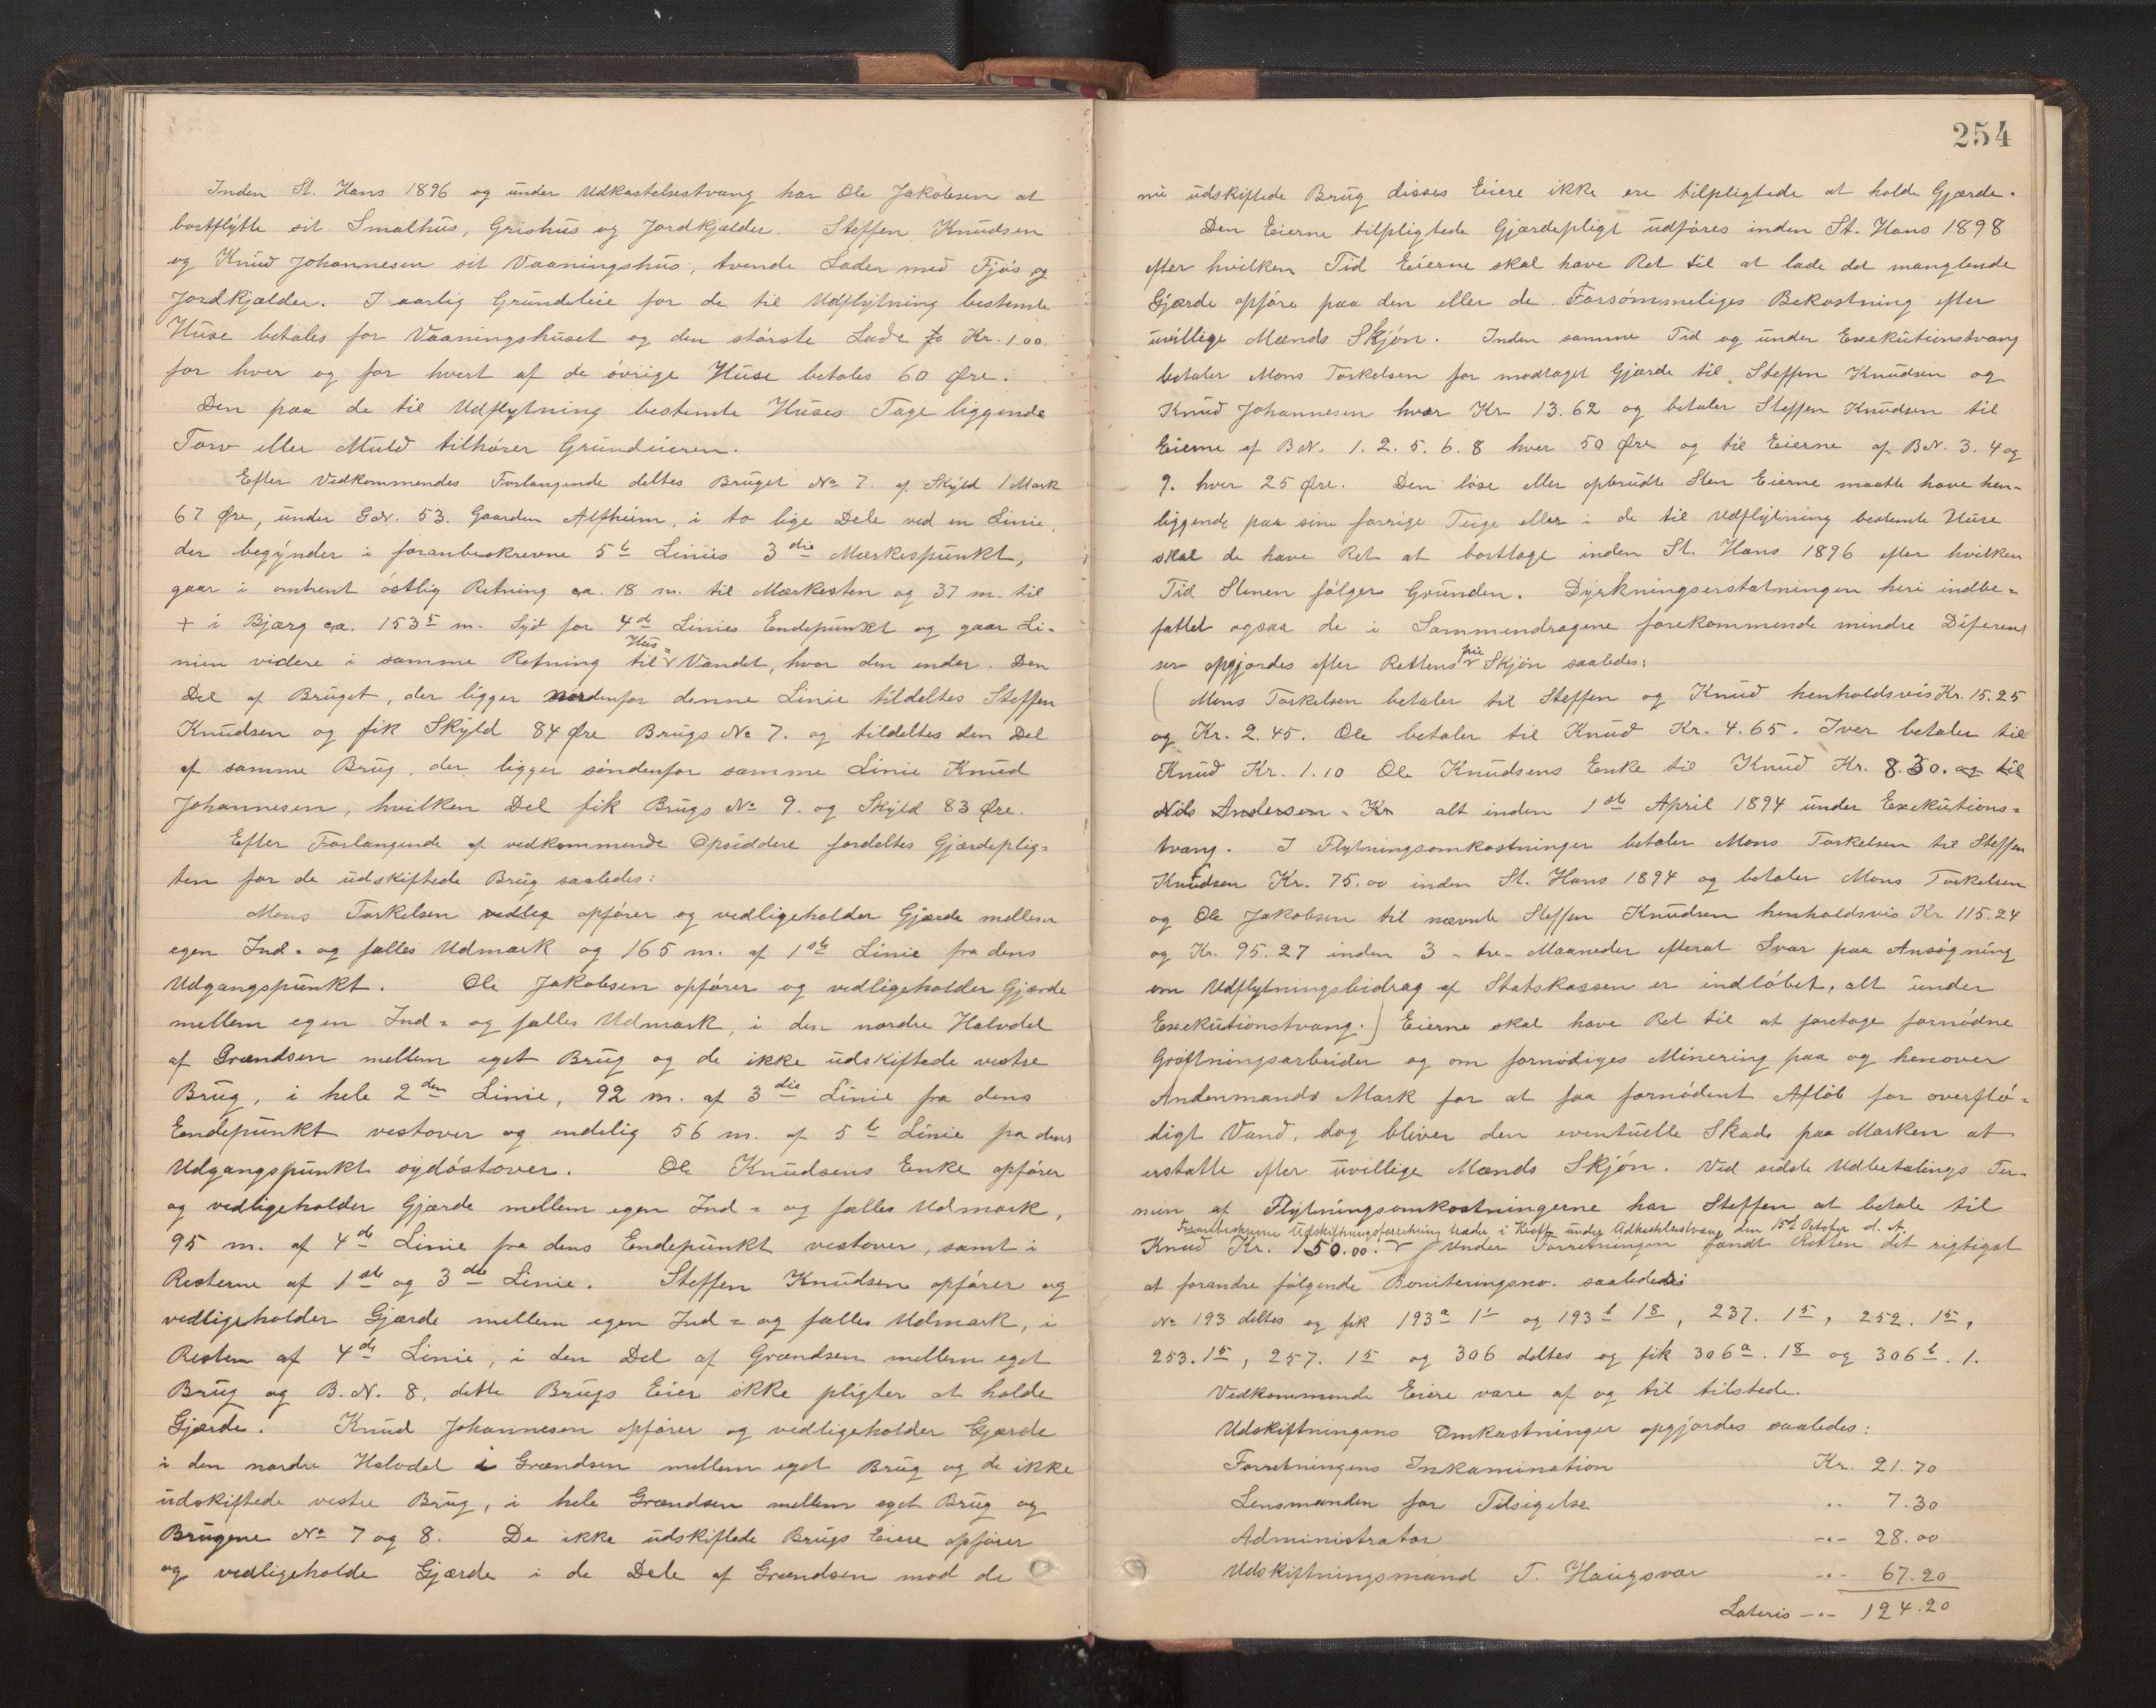 Inden St. Hans 1896 og under Udkastelsestvang har Ole Jakobsen at
bortflytte sit Smalhus, Grishus og Jordkjælder. Steffen Knudsen
og Knud Johannesen sit Vaaningshus, tvende Lader med Fjøs og
Jordkjælder. I aarlig Grundleie for de til Udflytning bestemte
Huse betales for Vaaningshuset og den største Lade Kr. 1.00
for hver og for hvert af de øvrige Huse betales 60 Øre.
Den paa de til Udflytning bestemte Huses Tage liggende
Torv eller Muld tilhører Grundeieren.
Efter Vedkommendes Forlangende deltes Bruget No 7. af Skyld 1 Mark
67 Øre, under G.N. 53. Gaarden Alfheim, i to lige Dele ved en Linie,
der begynder i foranbeskrevne 5te Linies 3die Mærkespunkt,
gaar i omtrent østlig Retning ca. 18 m. til Mærkesten og 37 m. til
+ i Bjærg ca. 153⁵ m. Syd for 4de Linies Endepunkt og gaar Li-
nien videre i samme Retning til Hus-Vandet, hvor den ender. Den
Del af Bruget, der ligger nordenfor denne Linie tildeltes Steffen
Knudsen og fik Skyld 84 Øre Brugs No 7. og tildeltes den Del
af samme Brug, der ligger søndenfor samme Linie Knud
Johannesen, hvilken Del fik Brugs No 9. og Skyld 83 Øre.
Efter Forlangende af vedkommende Opsiddere fordeltes Gjærdeplig=
ten for de udskiftede Brug saaledes:
Mons Torkelsen vedlig opfører og vedligeholder Gjærde mellem
egen Ind- og fælles Udmark og 165 m. af 1ste Linie fra dens
Udgangspunkt. Ole Jakobsen opfører og vedligeholder Gjærde
mellem egen Ind= og fælles Udmark, i den nordre Halvdel
af Grændsen mellem eget Brug og de ikke udskiftede vestre
Brug, i hele 2den Linie, 92 m. af 3die Linie fra dens
Endepunkt vestover og endelig 56 m. af 5te Linie fra dens
Udgangspunkt sydøstover. Ole Knudsens Enke opfører
og vedligeholder Gjærde mellem egen Ind= og fælles Udmark,
95 m. af 4de Linie fra dens Endepunkt vestover, samt i
Resterne af 1ste og 3die Linie. Steffen Knudsen opfører og
vedligeholder Gjærde mellem egen Ind= og fælles Udmark, i
Resten af 4de Linie, i den Del af Grændsen mellem eget
Brug og B.N. 8, dette Brugs Eier ikke pligter at holde
Gjærde. Knud Johannesen opfører og vedligeholder Gjærde
i den nordre Halvdel i Grændsen mellem eget Brug og de ikke
udskiftede vestre Brug, i hele Grændsen mellem eget Brug og
Brugene No 7 og 8. De ikke udskiftede Brugs Eiere opfører
og vedligeholde Gjærde i de Dele af Grændsen mod de
254
nu udskiftede Brug disses Eiere ikke ere tilpligtede at holde Gjærde.
Den Eierne tilpligtede Gjærdepligt udføres inden St. Hans 1898
efter hvilken Tid Eierne skal have Ret til at lade det manglende
Gjærde opføre paa den eller de Forsømmeliges Bekostning efter
uvillige Mænds Skjøn. Inden samme Tid og under Exekutionstvang
betaler Mons Torkelsen for modtaget Gjærde til Steffen Knudsen og
Knud Johannesen hver Kr 13.62 og betaler Steffen Knudsen til
Eierne af B.N. 1. 2. 5. 6. 8 hver 50 Øre og til Eierne af B.N. 3. 4 og
9. hver 25 Øre. Den løse eller opbrudte Sten Eierne maatte have hen-
liggende paa sine forrige Teige eller i de til Udflytning bestemte Huse
skal de have Ret at borttage inden St. Hans 1896 efter hvilken
Tid Stenen følger Grunden. Dyrkningserstatningen heri indbe=
fattet ogsaa de i Sammendragene forekommende mindre Diferen
ser opgjordes efter Rettens Skjøn saaledes:
(Mons Torkelsen betaler til Steffen og Knud henholdsvis Kr. 15.25
og Kr. 2.45. Ole betaler til Knud Kr. 4.65. Iver betaler til
Knud Kr. 1.10 Ole Knudsens Enke til Knud Kr. 8.30. og til
Nils Anderson - Kr alt inden 1ste April 1894 under Exekutions=
tvang. I Flytningsomkostninger betaler Mons Torkelsen til Steffen
Knudsen Kr. 75.00 inden St. Hans 1894 og betaler Mons Torkelsen
og Ole Jakobsen til nævnte Steffen Knudsen henholdsvis Kr 115.24
og Kr. 95.27 inden 3 - tre - Maaneder efterat Svar paa Ansøgning
om Udflytningsbidrag af Statskassen er indløbet, alt under
Exekutionstvang.) Eierne skal have Ret til at foretage fornødne
Grøftningsarbeider og om fornødiges Minering paa og henover
Andenmands Mark for at faa fornødent Afløb for overflø=
digt Vand, dog bliver den eventuelle Skade paa Marken at
erstatte efter uvillige Mænds Skjøn. Ved sidste Udbetalings Ter-
min af Flytningsomkostningerne har Steffen at betale til
Foranbeskrevne Udskiftningsforretning træder i Kraft under Udkastelsestvang den 15de October d. A.
Knud Kr. 150.00. Under Forretningen fandt Retten det rigtigst
at forandre følgende Boniteringsno. saaledes
No 193 deltes og fik 193a 1 og 193b 1⁸, 237. 1⁵, 252. 1⁵,
253. 1⁵, 257. 1⁵ og 306 deltes og fik 306a. 1⁸ og 306b. 1.
Vedkommende Eiere vare af og til tilstede.
Udskiftningens Omkostninger opgjordes saaledes:
Forretningens Inkamination Kr. 21.70
Lensmanden for Tilsigelse " 7.30
Administrator -"- 28.00
Udskiftningsmand T. Haugsvær -"- 67.20
Lateris -"- 124.20